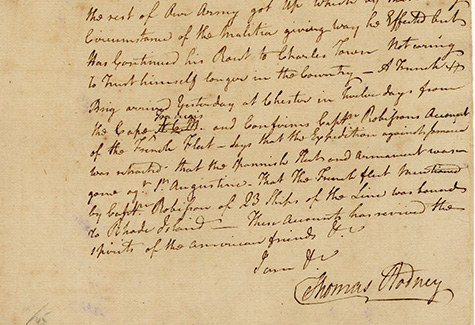 the rest of Our Army got Up which as
Circumstance of the Malitia giving way he Effected but
Has Continued his Rout to Charles Town Not caring
to Trust himself longer in the Country — A French
Brig arrived Yesterday at Chester in Twelve days from
the Cape Francis and Confirms Captn Robissons Account
of the French Fleet — says that the Expedition against Jamaica
was that the Spannish Fleet and Armament was
gone agt St Augustine. That the French fleet mentioned
by Captn Robisson of 23 Ships of the Line was bound
To Rhode Island — These Accounts has revived the
spirits of the American friends &c
I am &c
Thomas Rodney